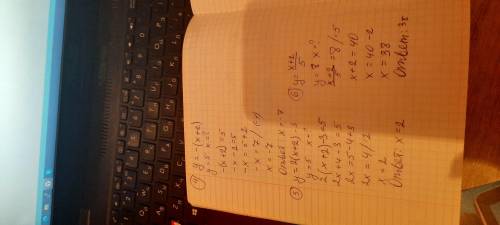 ④ y = -(x+2)
y = 5 x = ?
-(x+2) = 5
-x-2 = 5
-x = 5+2
-x = 7 /:(-1)
x = -7
Ответ: x = -7
⑤ y = 2(x+2)-3
y = 5 x = ?
2(x+2)-3 = 5
2x+4-3 = 5
2x = 5-4+3
2x = 4 /:2
x = 2
Ответ: x = 2
⑥ y = (x+2)/5
y = 8 x = ?
(x+2)/5 = 8 /·5
x+2 = 40
x = 40-2
x = 38
Ответ: 38